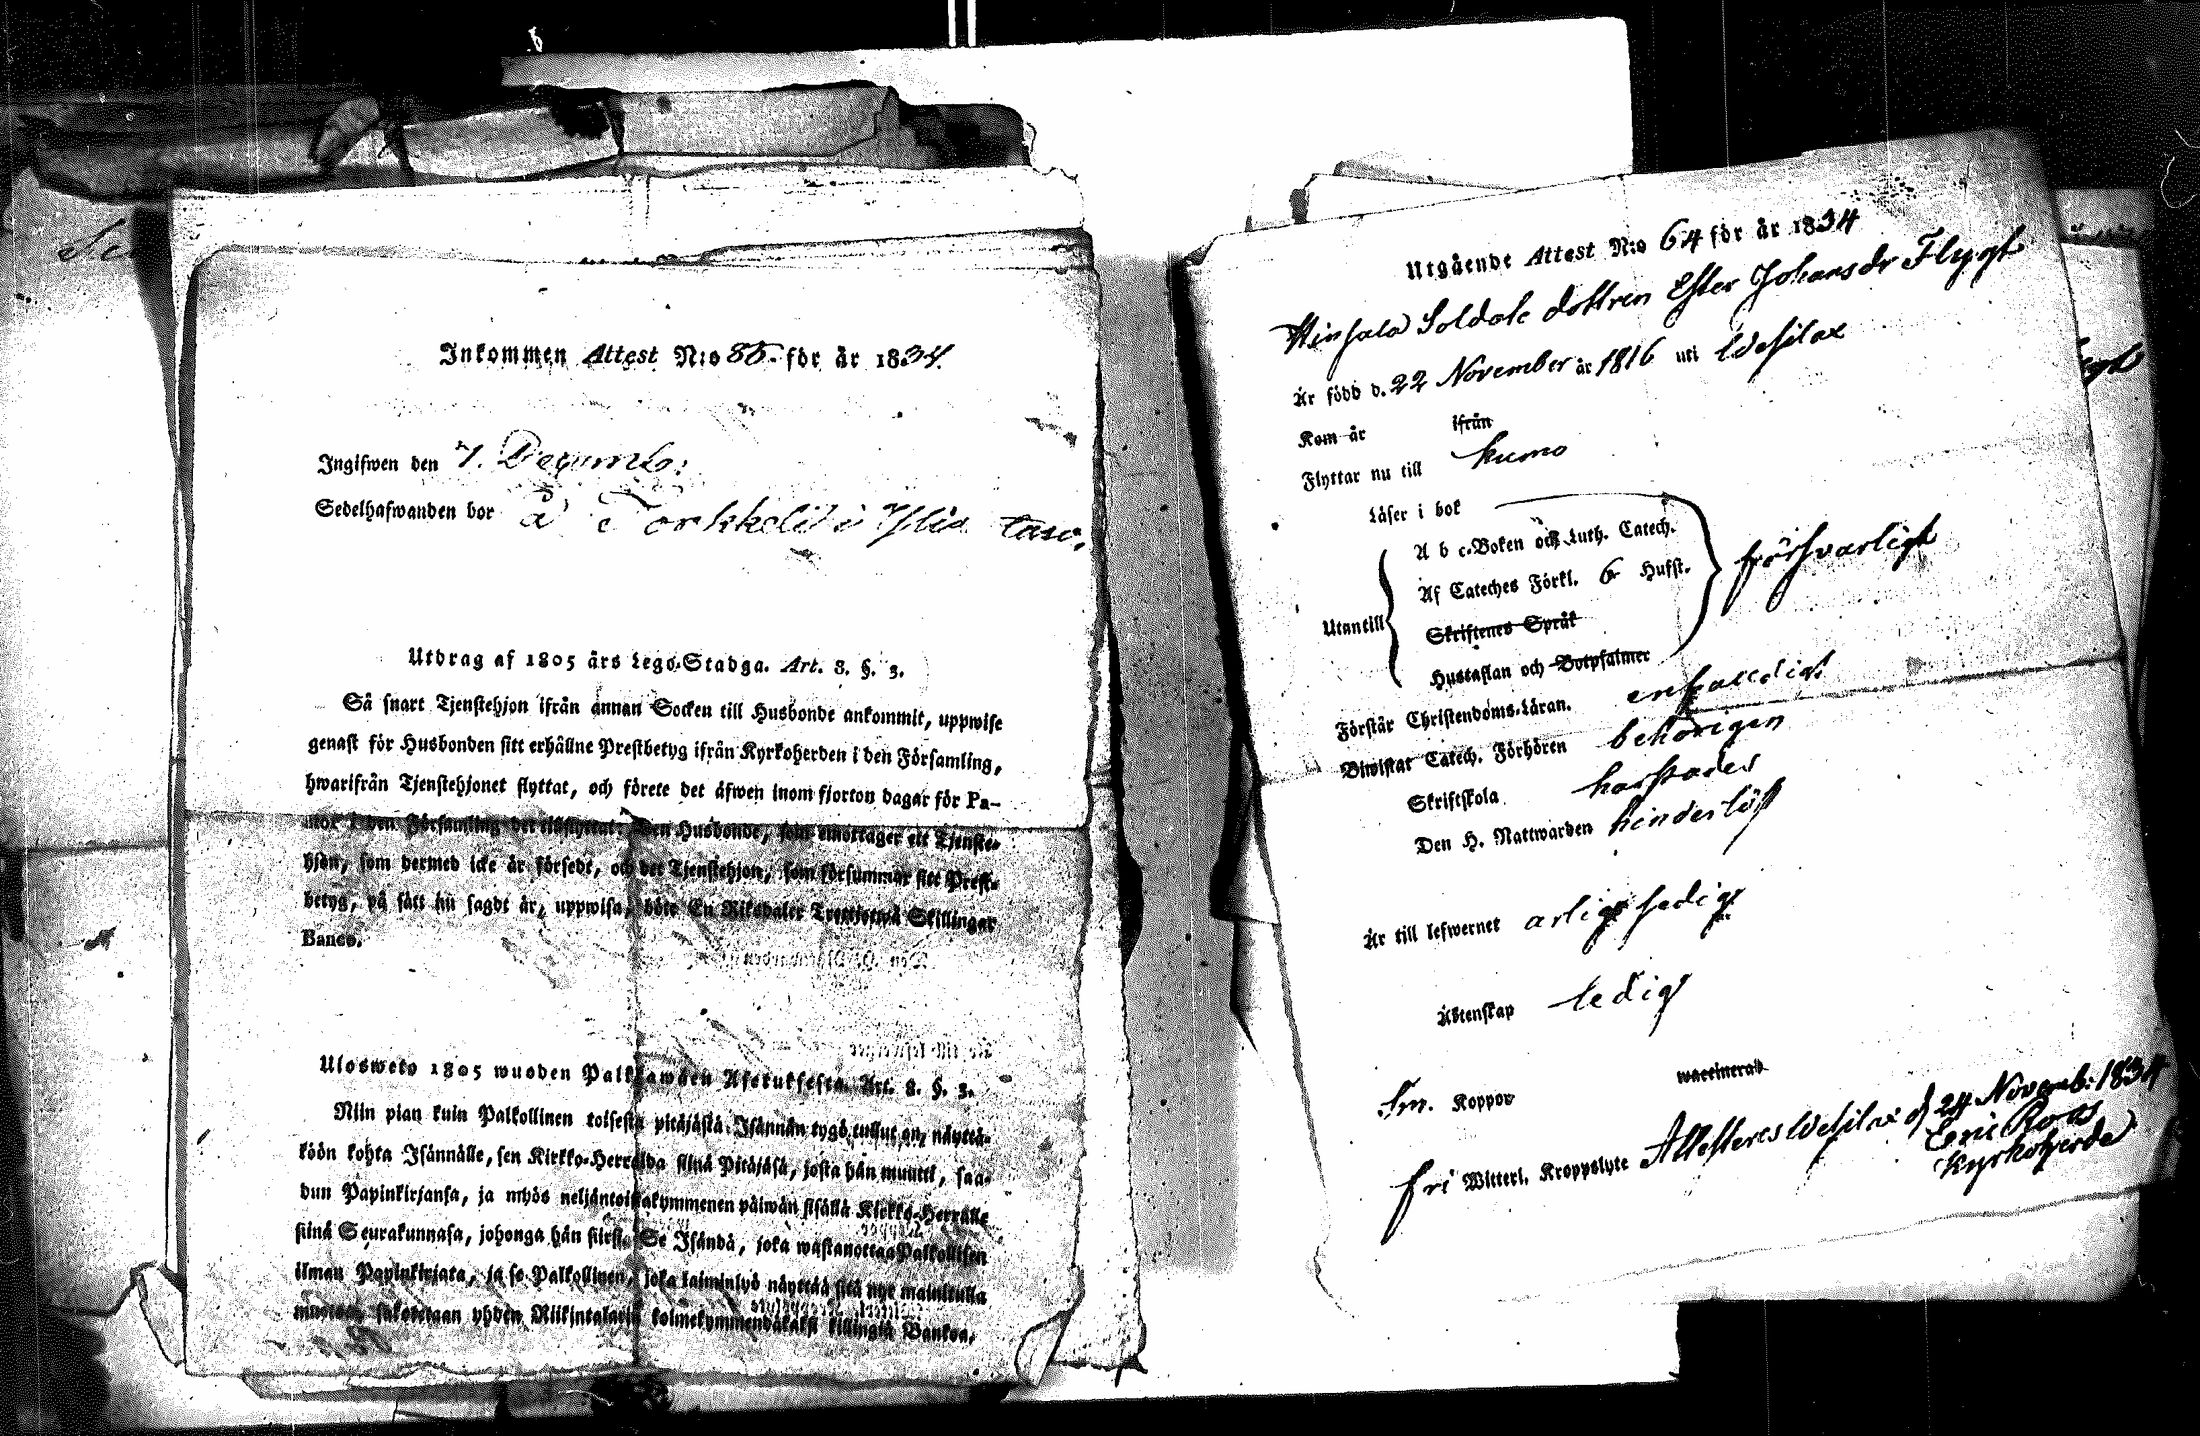 Inkommen Attest N:o 85. för år 1834.
Ingifwen den 7. Decemb:
Sedelhafwanden bor å Torkkeli i Ylis taro.
Utdrag af 1805 års Lego-Stadga. Art. 8. §. 3.
Så snart Tjenstehjon ifrån annan Socken till Husbonde ankommit, uppwise
genast för Husbonden sitt erhållne Prestbetyg ifrån Kyrkoherden i den Församling,
hwarifrån Tjenstehjonet flyttat, och förete det äfwen inom fjorton dagar för Pa-
stor i den Församling det tillflyttat: Den Husbonde, som emottager ett Tjenste-
hjon, som dermed icke är försedt, och det Tjenstehjon, som försummar sitt Prest-
betyg, på sätt nu sagdt är, uppwisa, böte En Riksdaler Trettiotwå Skillingar
Banco.
Ulosweto 1805 wuoden Palkkawäen Asetuksesta. Art. 8. §. 3.
Niin pian kuin Palkollinen toisesta pitäjästä Isännän tygö tullut on, näyttä-
köön kohta Isännälle, sen Kirkko-Herralda siinä Pitäjäsä, josta hän muutti, saa-
dun Papinkirjansa, ja myös neljäntoistakymmenen päiwän sisällä Kirkko-Herralle
siinä Seurakunnasa, johonga hän siirsi. Se Isändä, joka wastanottaa Palkollisen
ilman Papinkirjata, ja se Palkollinen, joka laiminlyö näyttää sitä nyt mainitulla
muotoa, sakotetaan yhden Riikintalarin kolmekymmendäkaksi killingiä Bankoa.
Utgående Attest N:o 64 för år 1834
Soldate dottren Ester Johansdr Flygt
Är född d. 22 November år 1816 uti Wesilax
Kom år ifrån
Flyttar nu till Kumo
Läser i bok
A b c-Boken och Luth. Catech.
Af Cateches Förkl. 6 Hufst. försvarligt
Utantill
Skriftenes Språk
Hustaflan och Botpsalmer
Förstår Christendoms-Läran. enfaldigt
Biwistat Catech. Förhören behörigen
Skriftskola
Den H. Nattwarden hinderlöst
Är till lefwernet ärlig sedig
Äktenskap ledig
Koppor waccinerad
fri Witterl. Kroppslyte Attesteres Wesilax d 24 Novemb: 1834
Eric Roos
Kyrkoherde